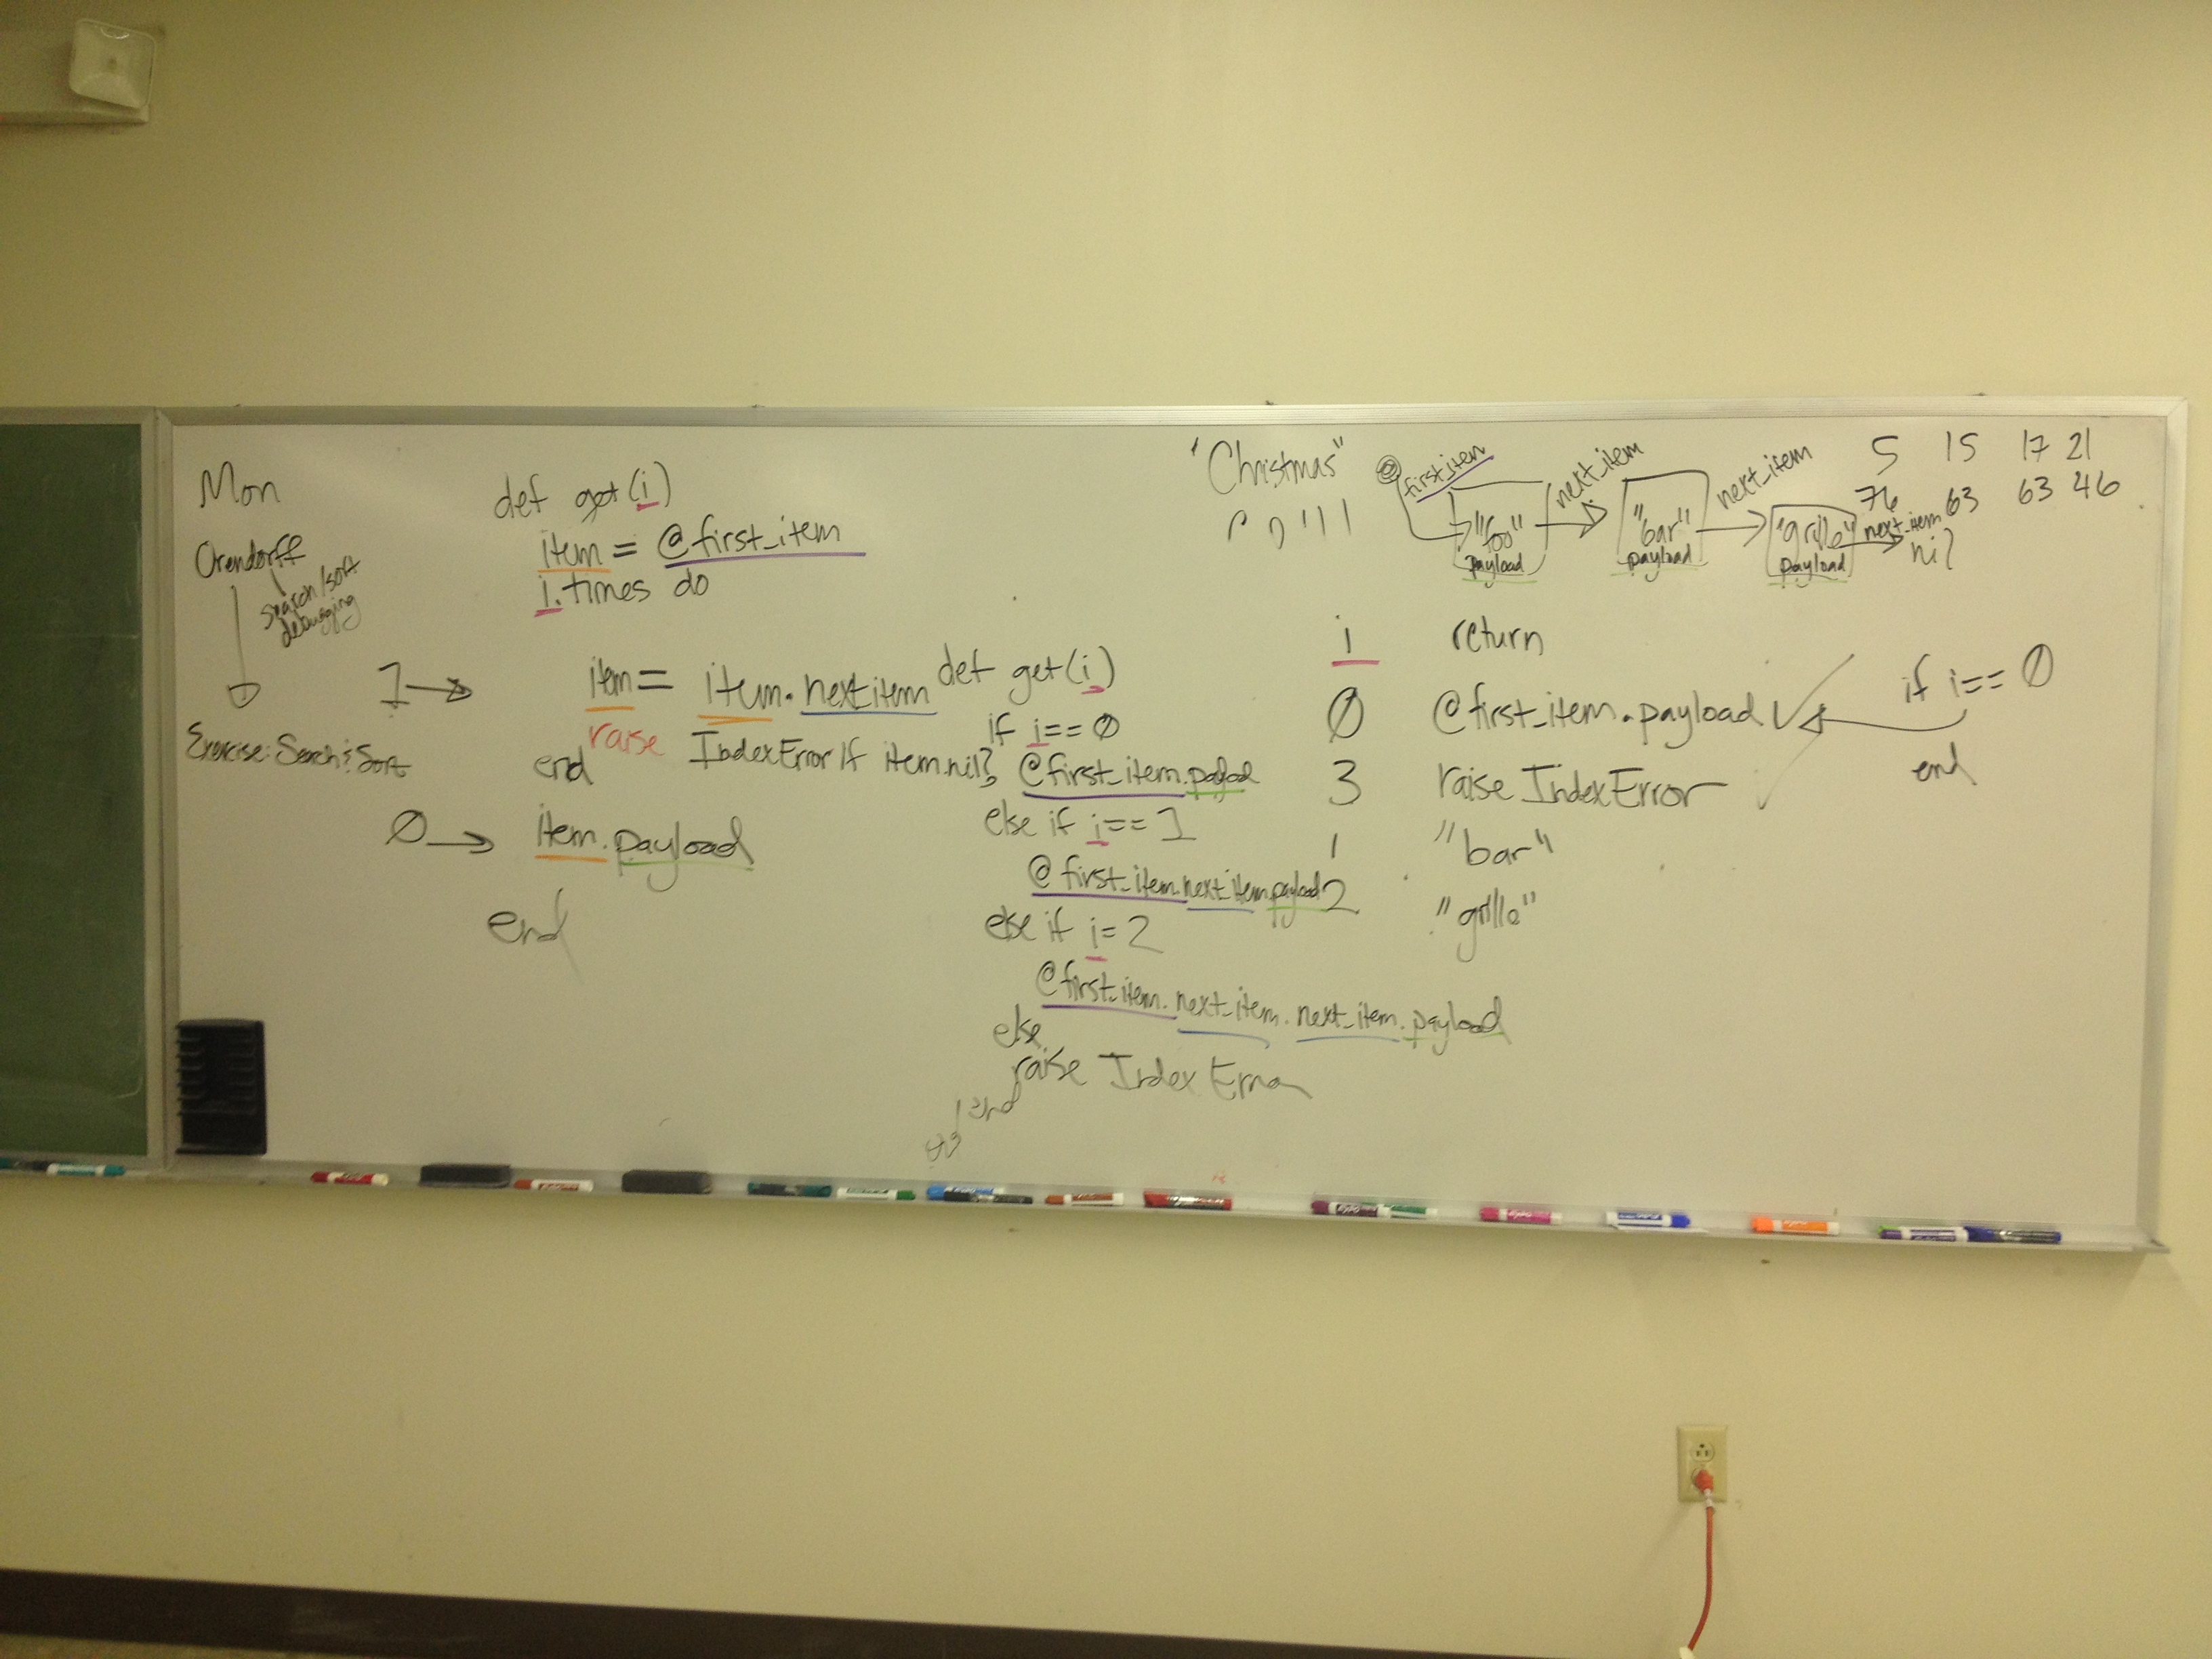 Mon
Orendorff
search/sort
debugging
Exercise: Search & Sort
def get(i)
item = @first_item
i.times do
1 →
item = item.next_item
raise IndexError if item.nil?
end
0 → item.payload
end
def get(i)
if i == 0
@first_item.payload
else if i == 1
@first_item.next_item.payload
else if i = 2
@first_item.next_item.next_item.payload
else
raise Index Error
end
end
"Christmas"
@first_item
"foo"
payload
next_item
"bar"
payload
next_item
"grille"
payload
next_item
nil
5 15 17 21
76 63 63 46
i return
0 @first_item.payload ✓
3 raise IndexError ✓
1 "bar"
2 "grille"
if i == 0
end